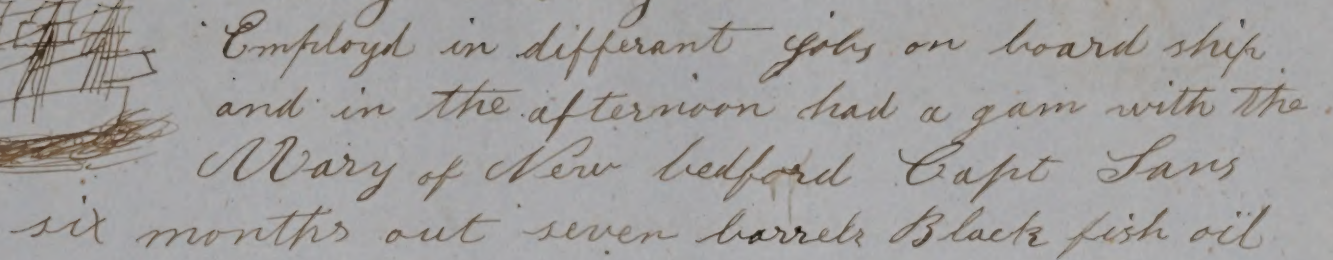 Employd in differant jobs on board ship
and in the afternoon had a gam with the
Mary of New bedford Capt Sans
six months out seven barrels Black fish oil